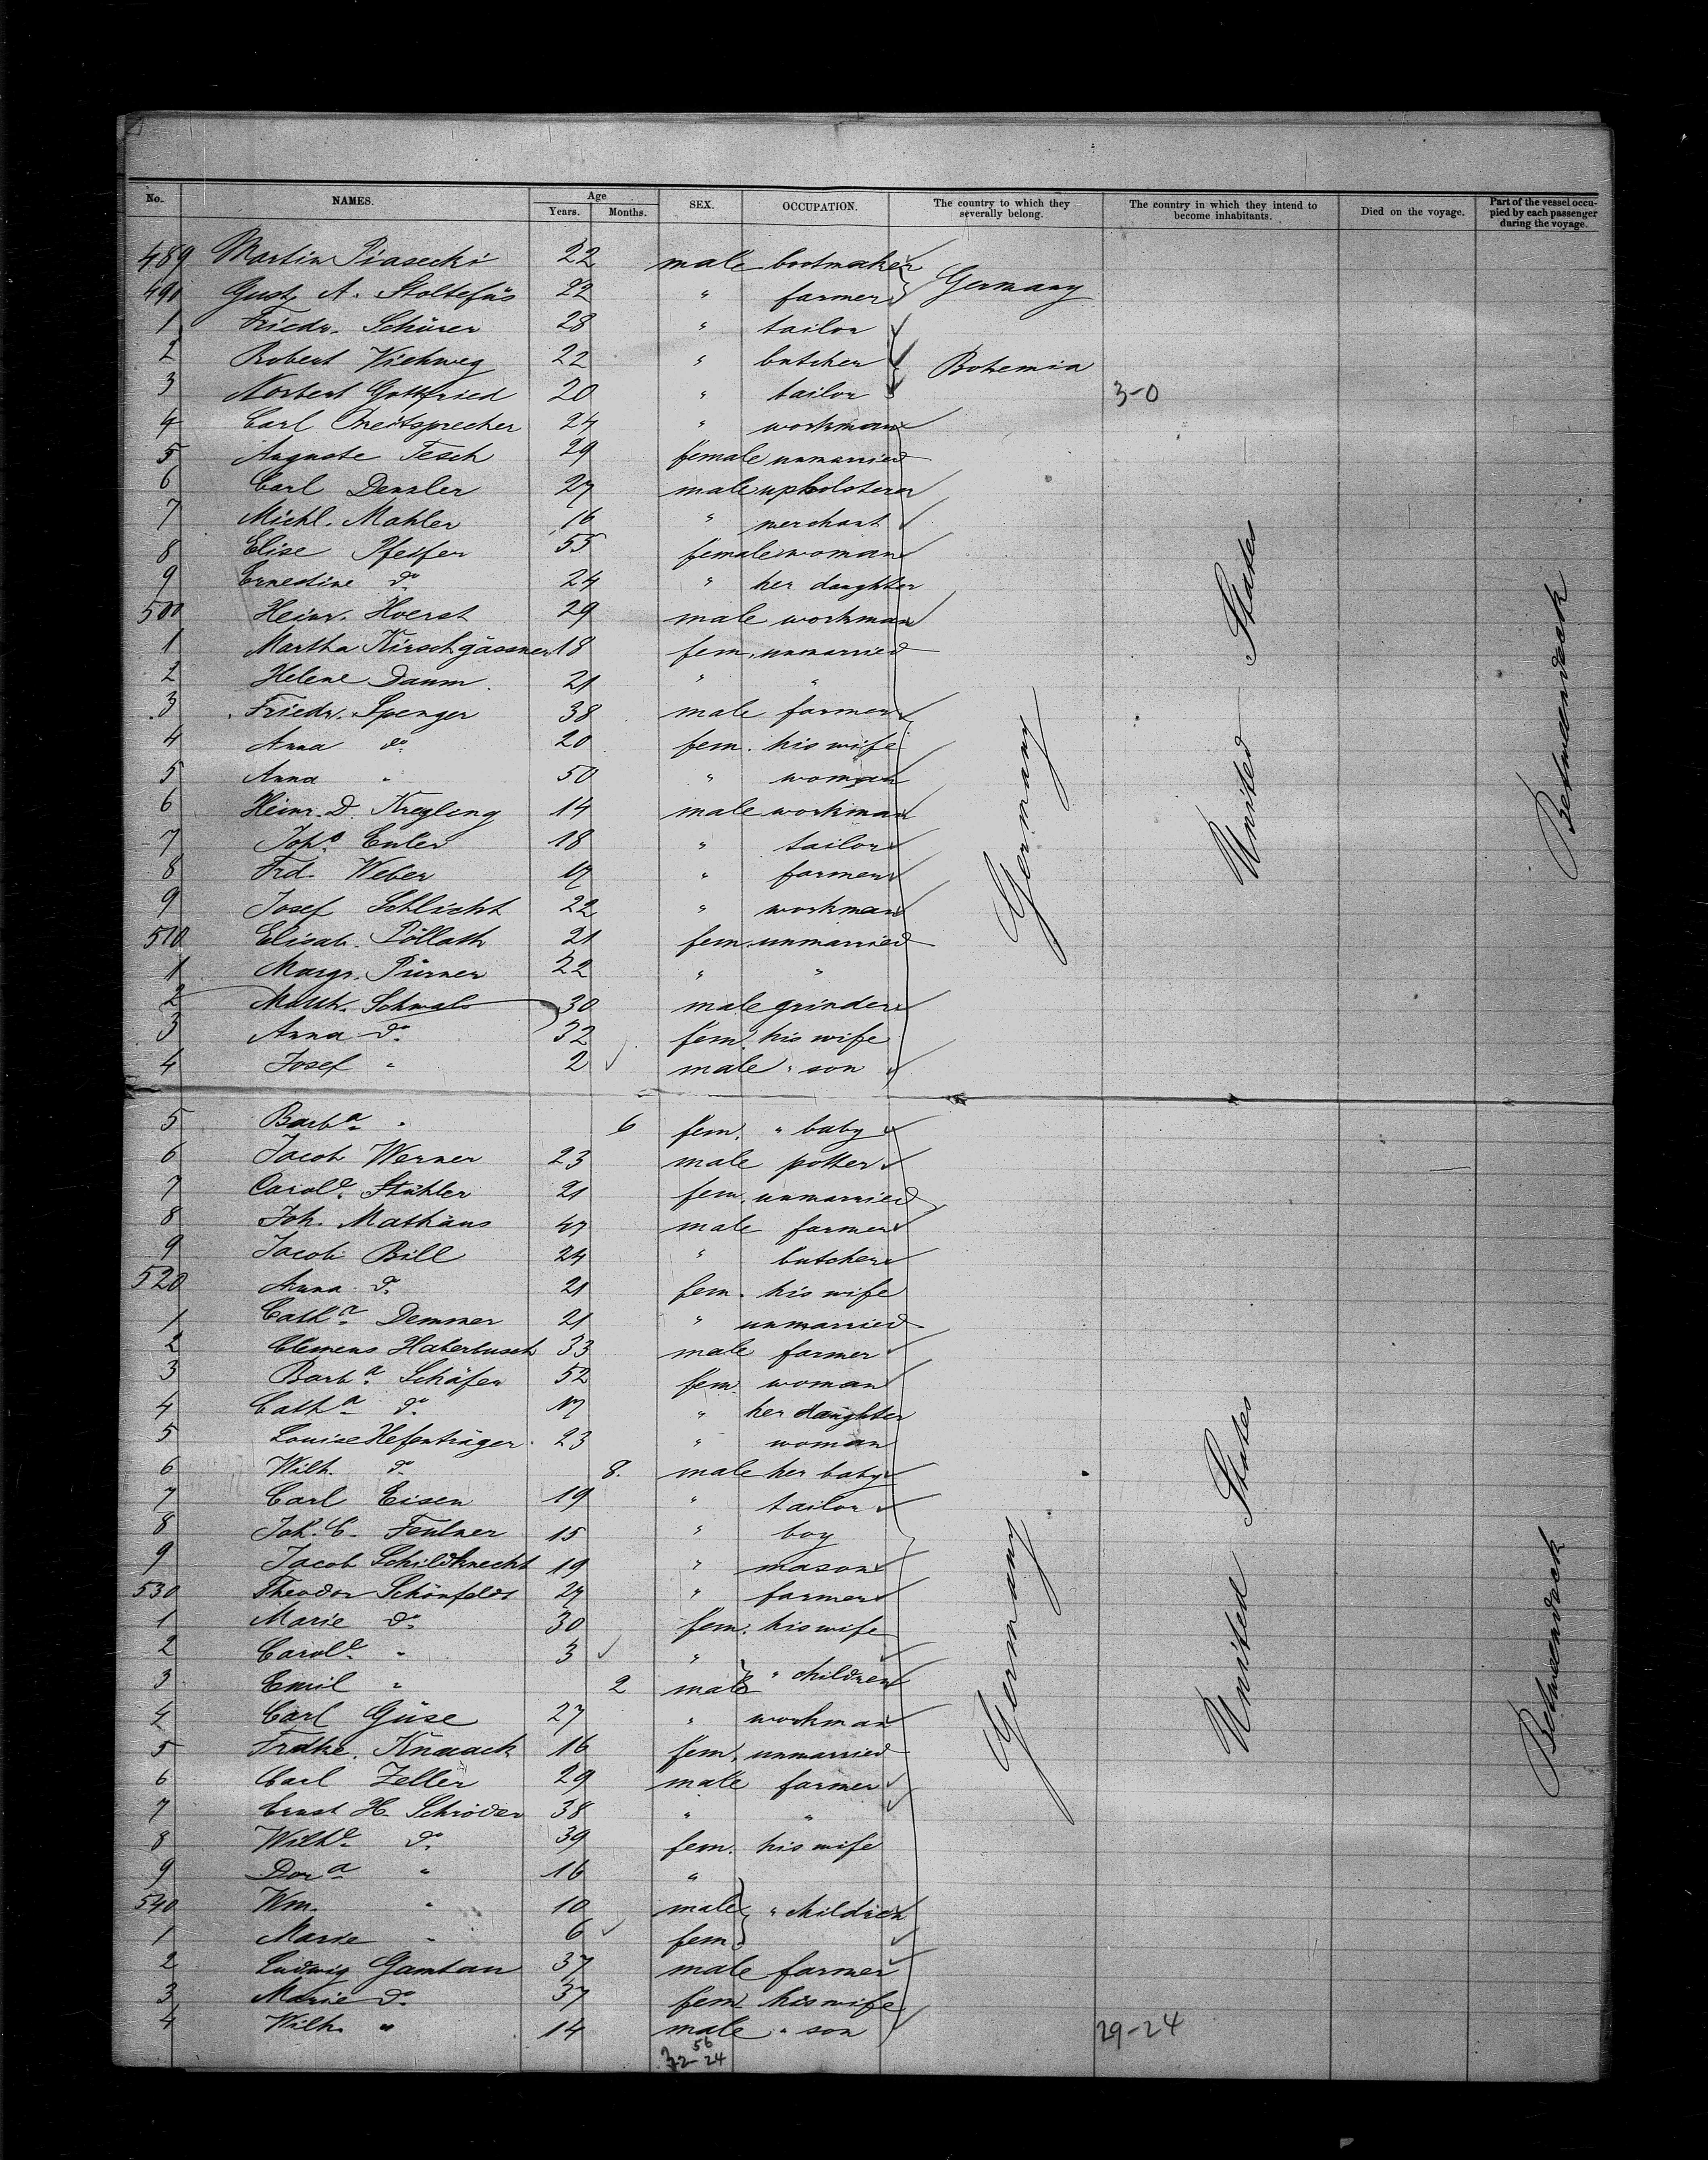 No. NAMES. Age Years. Months. SEX. OCCUPATION. The country to which they severally belong. The country in which they intend to become inhabitants. Died on the voyage. Part of the vessel occupied by each passenger during the voyage.
489 Martin Piasecki 22 male bootmaker Germany
490 Gust. A. Stoltefüs 22 " farmer
1 Friedr. Schürer 28 " tailor
2 Robert Viehweg 22 " butcher Bohemia
3 Norbert Gottfried 20 " tailor 3-0
4 Carl 24 " workman
5 Auguste Tesch 29 female unmarried
6 Carl Denzler 27 male upholsterer
7 Michl. Mahler 16 " merchant
8 Elise Pfeifer 55 female woman
9 Ernestine do 24 " her daughter
500 Heinr. Hoerst 29 male workman
1 Martha Kirschgässner 18 fem. unmarried
2 Helene Daum 21 " "
3 Friedr. Spenger 38 male farmer
4 Anna do 20 fem. his wife
5 Anna " 50 " woman
6 Heinr. D. Kreyling 14 male workman
7 Johs. Euler 18 " tailor
8 Frd. Weber 17 " farmer
9 Josef Schlicht 22 " workman
510 Elisab. Pöllath 21 fem. unmarried
1 Margr. Pürner 22 " "
2 Matth. Schwab 30 male grinder
3 Anna do. 32 fem. his wife
4 Josef " 2 male " son
Germany
United States
Betweendeck
5 Barba. " 6 fem. " baby
6 Jacob Werner 23 male potter
7 Carole. Stühler 21 fem. unmarried
8 Joh. Mathäus 47 male farmer
9 Jacob Bill 24 " butcher
520 Anna do. 21 fem. his wife
1 Catha. Demmer 21 " unmarried
2 Clemens Haterbusch 33 male farmer
3 Barba. Schäfer 52 fem. woman
4 Catha. do. 17 " her daughter
5 Louise Hefenträger 23 " woman
6 Wilh. do. 8. male her baby
7 Carl Eisen 19 " tailor
8 Joh. C. Feulner 15 " boy
9 Jacob Schildknecht 19 " mason
530 Theodor Schönfeldt 27 " farmer
1 Marie do. 30 fem. his wife
2 Carole. " 3 "
3 Emil " 2 male " children
4 Carl Güse 27 " workman
5 Frdke. Knaack 16 fem. unmarried
6 Carl Zeller 29 male farmer
7 Ernst H. Schröder 38 " "
8 Wilhe. do. 39 fem. his wife
9 Dora " 16 "
540 Wm. " 10 male " children
1 Marie " 6 fem.
2 Ludwig Gamtau 37 male farmer
3 Marie do. 37 fem. his wife
4 Wilh. " 14 male " son 29-24
Germany
United States
Betweendeck
56
32-24